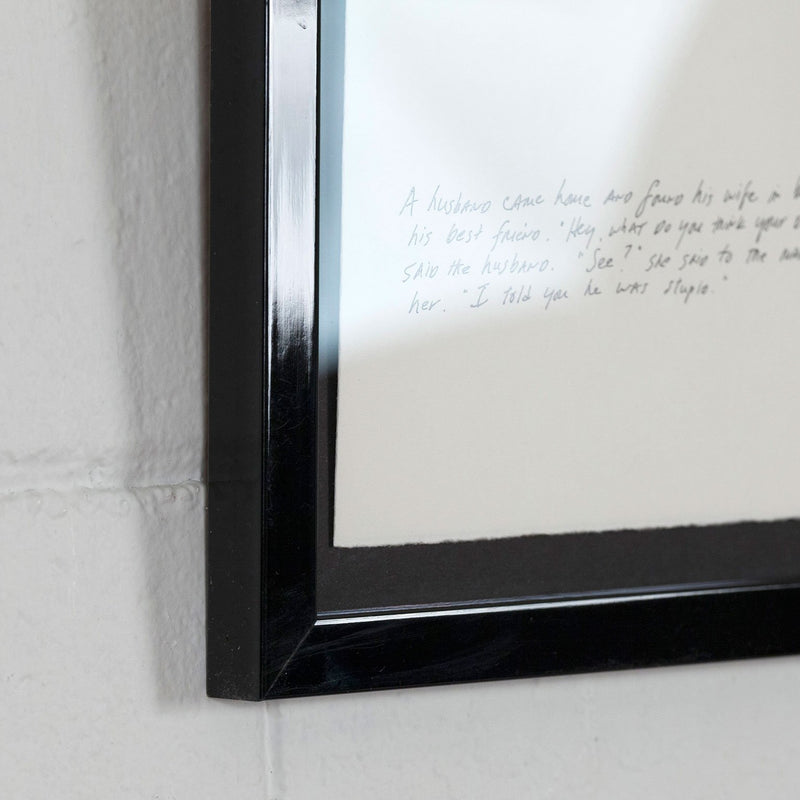 A husband came home and found his wife in
his best friend. "Hey, what do you think your
said the husband. "See?" she said to the
her. "I told you he was stupid."